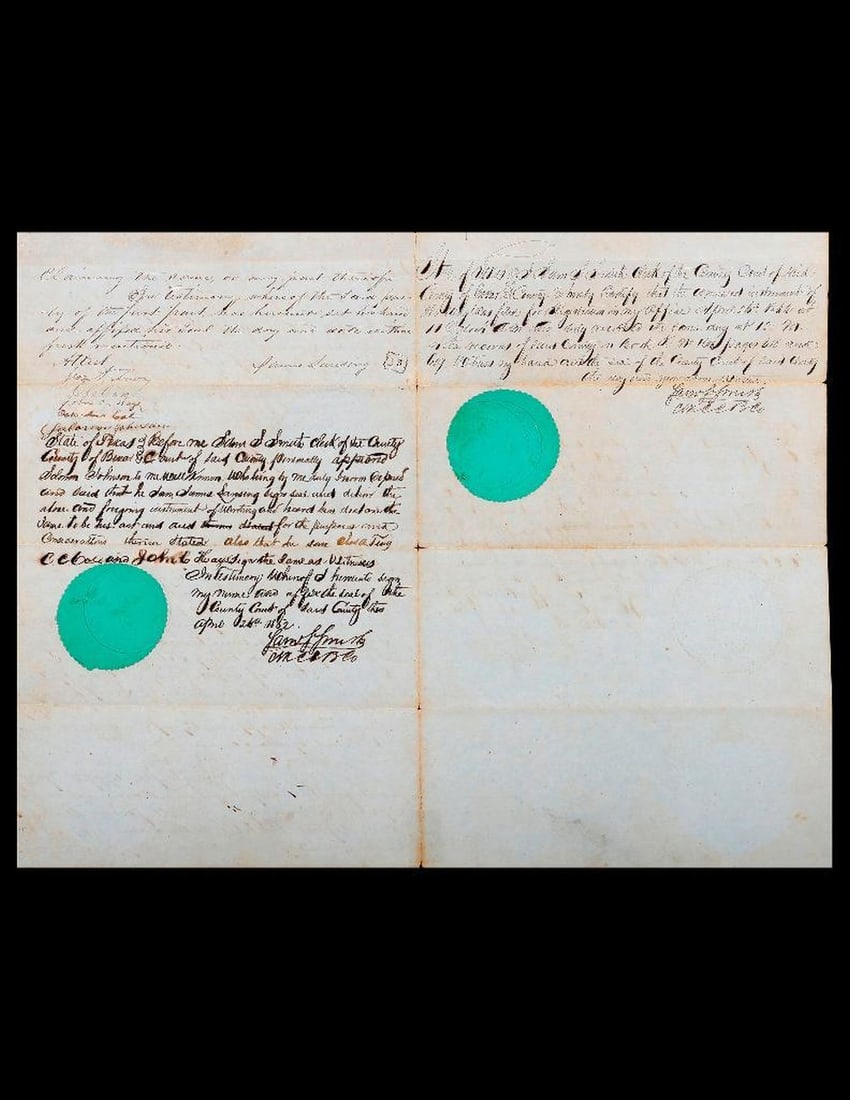 Claiming the same, or any part thereof
In testimony whereof the said par-
ty of the first part, has hereunto set his hand
and affixed his seal the day and date written
first mentioned.
Attest
James Lansing
Solomon Johnson
State of Texas Before me Sam S Smith Clerk of the County
County of Bexar Court of said County personally appeared
Solomon Johnson to me well known, who being by me duly sworn
and said that he saw James Lansing sign seal and deliver the
above and foregoing instrument of writing and heard him declare the
same to be his act and deed for the purposes and
Considerations therein Stated. Also that he saw
and John C Hays sign the same as Witnesses
In testimony Whereof I hereunto sign
my name and affix the seal of the
County Court of said County this
April 26th 1852
Sam S Smith
The State of Texas I Sam S Smith Clerk of the County Court of said
County of Bexar County Hereby Certify that the annexed instrument of
was filed for Registration in my Office April 26th 1852 at
11 O'clock and duly recorded the same day at 12 M.
in the records of said County in Book pages 62 and
Witness my hand and the seal of the County Court of said County
the day and year above
Sam S Smith